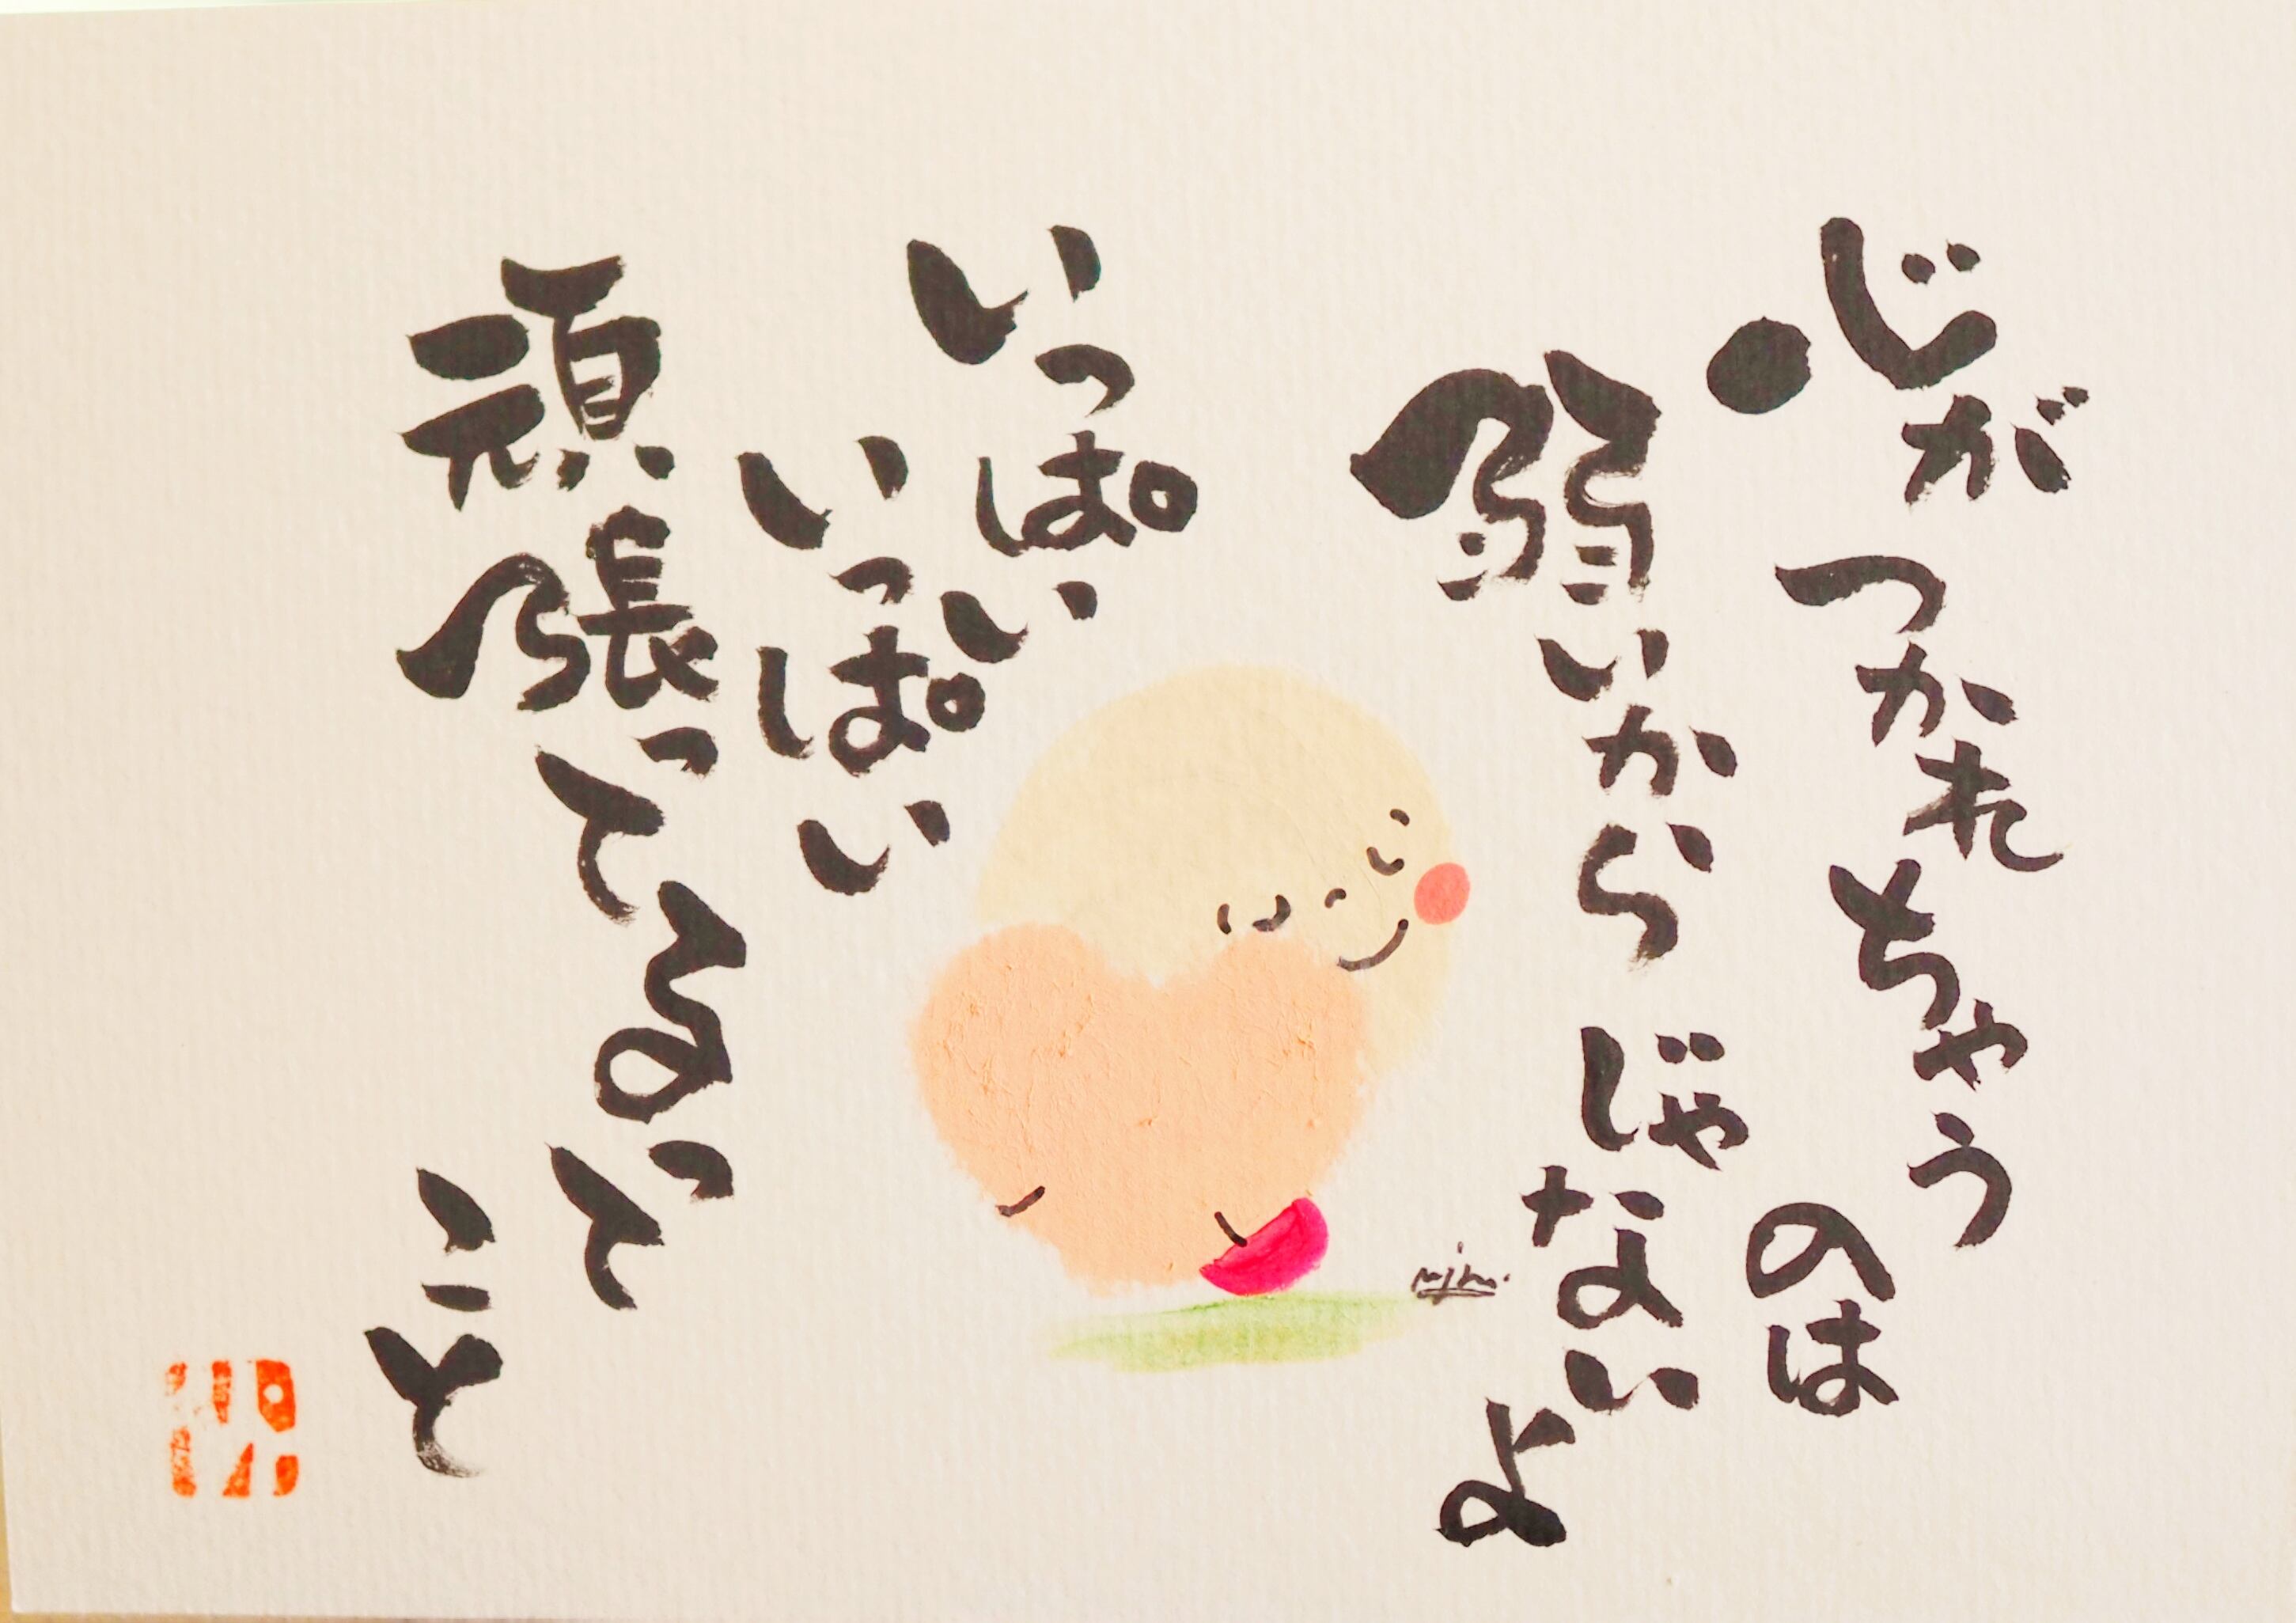 心が
つかれ
ちゃう
のは
弱いから
じゃ
ない
よ
いっぱい
いっぱい
頑張ってるって
こと